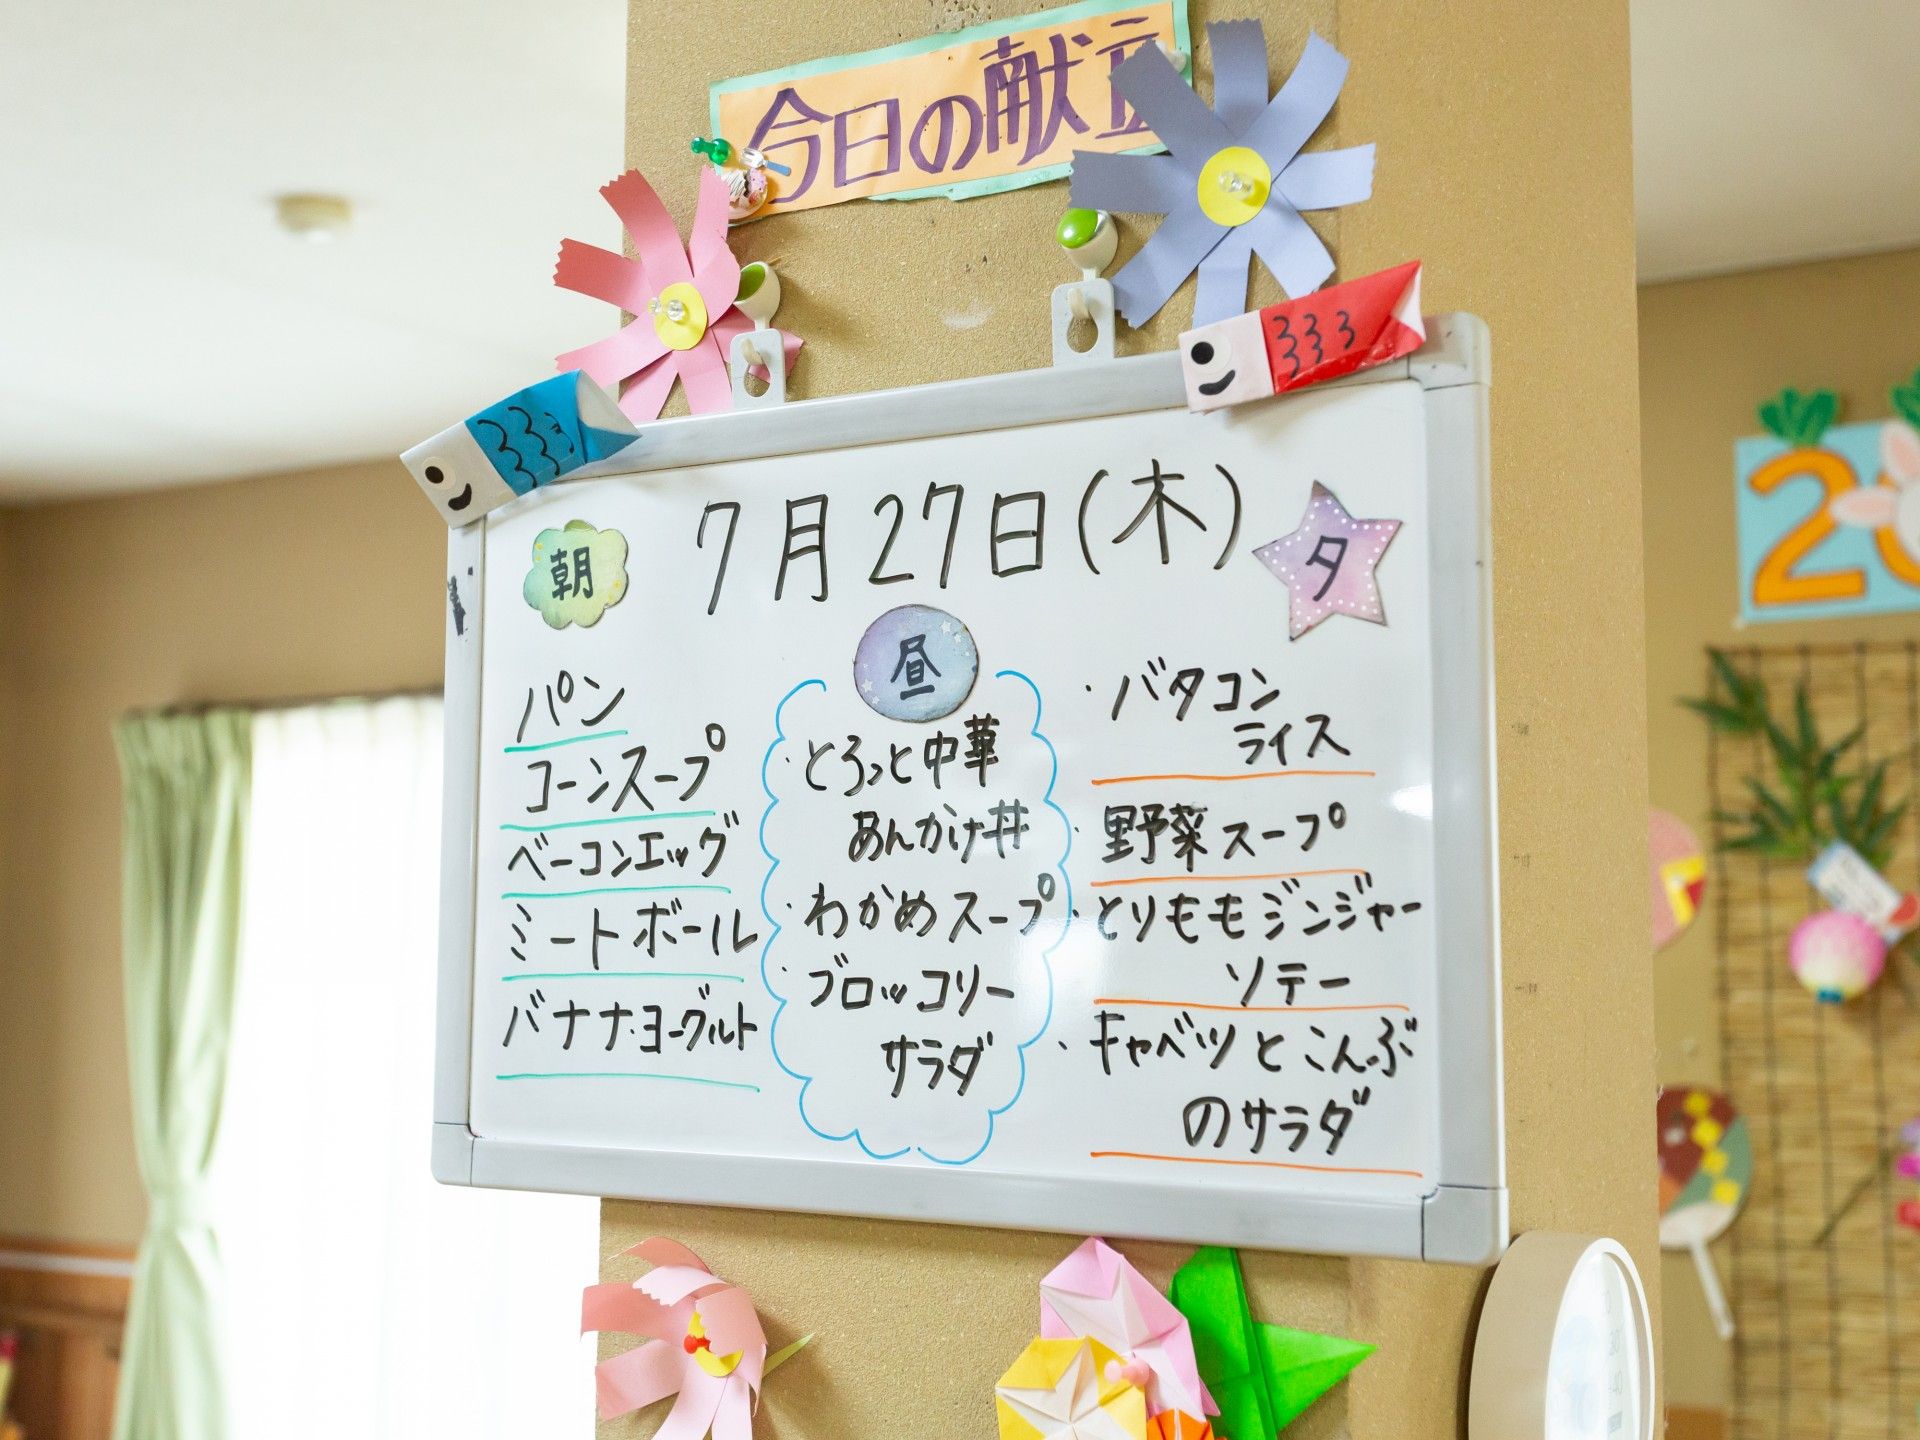 今日の献立
7月27日(木)
朝
パン
コーンスープ
ベーコンエッグ
ミートボール
バナナヨーグルト
昼
・とろっと中華
あんかけ丼
・わかめスープ
・ブロッコリー
サラダ
夕
・バタコン
ライス
・野菜スープ
・とりももジンジャー
ソテー
・キャベツとこんぶ
のサラダ